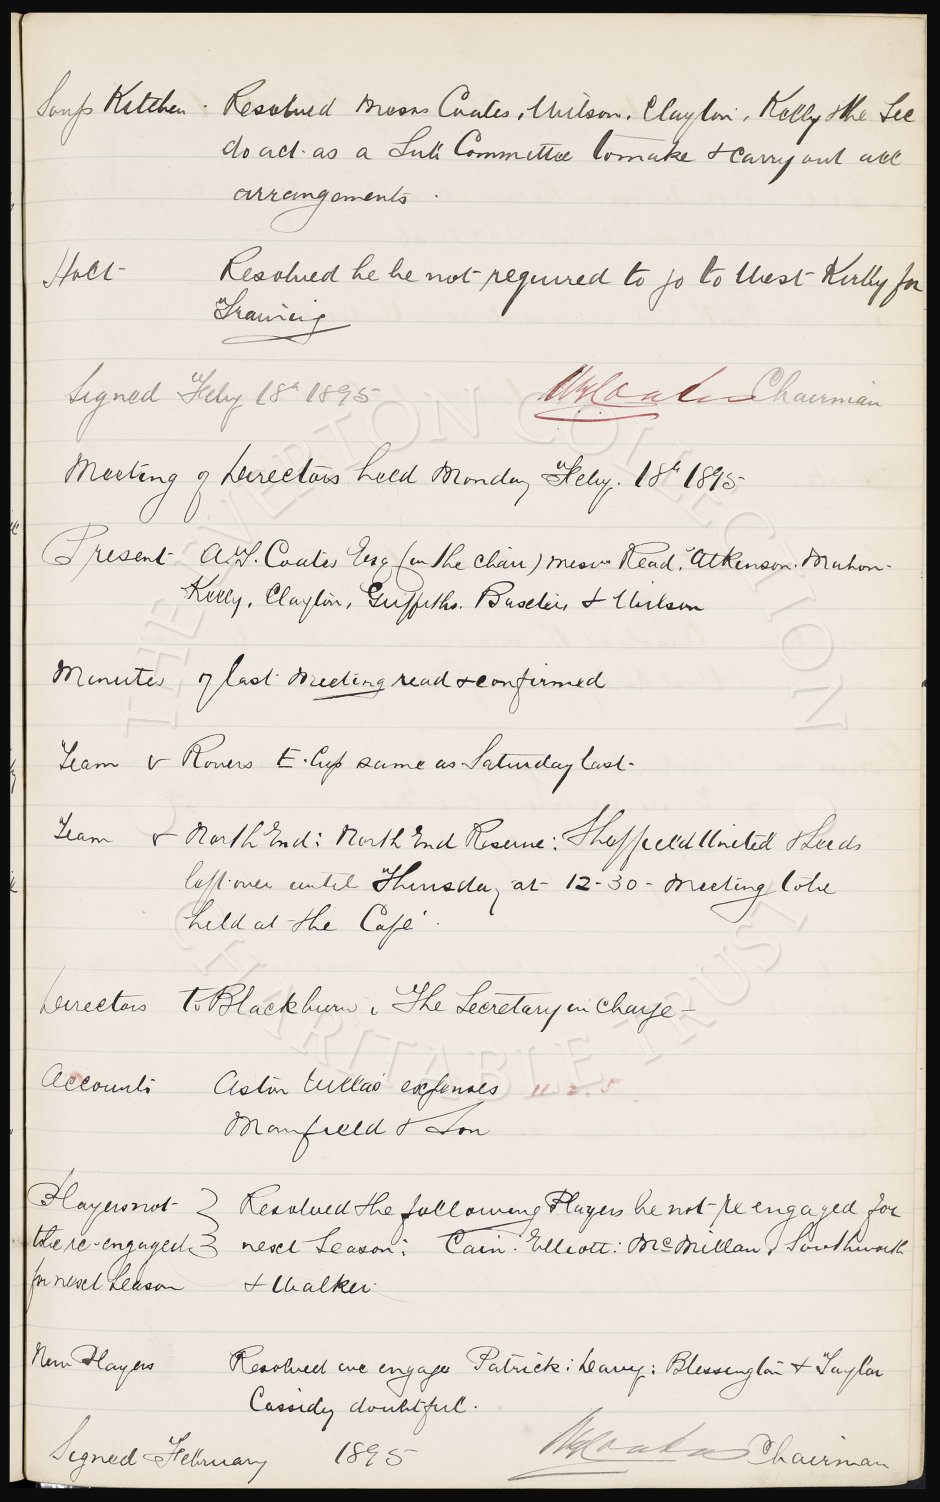 Soup Kitchen. Resolved Messrs Coates, Wilson, Clayton, Kelly & the Sec
do act as a Sub Committee to make & carry out all
arrangements.
Holt Resolved he be not required to go to West Kirby for
Training
Signed Feby 18th 1895 Coates Chairman
Meeting of Directors held Monday Feby. 18th 1895
Present A.T. Coates Esq (in the chair) Messrs Read, Atkinson, Mahon
Kelly, Clayton, Griffiths, Baxter & Wilson
Minutes of last Meeting read & confirmed
Team v Rovers E. Cup same as Saturday last
Team v North End: North End Reserve: Sheffield United & Leeds
left over until Thursday at 12-30 - Meeting to be
held at the Café.
Directors to Blackburn, The Secretary in charge -
Accounts Aston Villas expenses 11.2.5
Manfield & Son
Players not } Resolved the following Players be not re engaged for
to be re-engaged } next Season: Cain: Elliott: McMillan, Southworth
for next Season & Walker
New Players Resolved we engage Patrick: Davey: Blessington & Taylor
Cassidy doubtful.
Signed February 1895 Coates Chairman
THE EVERTON COLLECTION
CHARITABLE TRUST